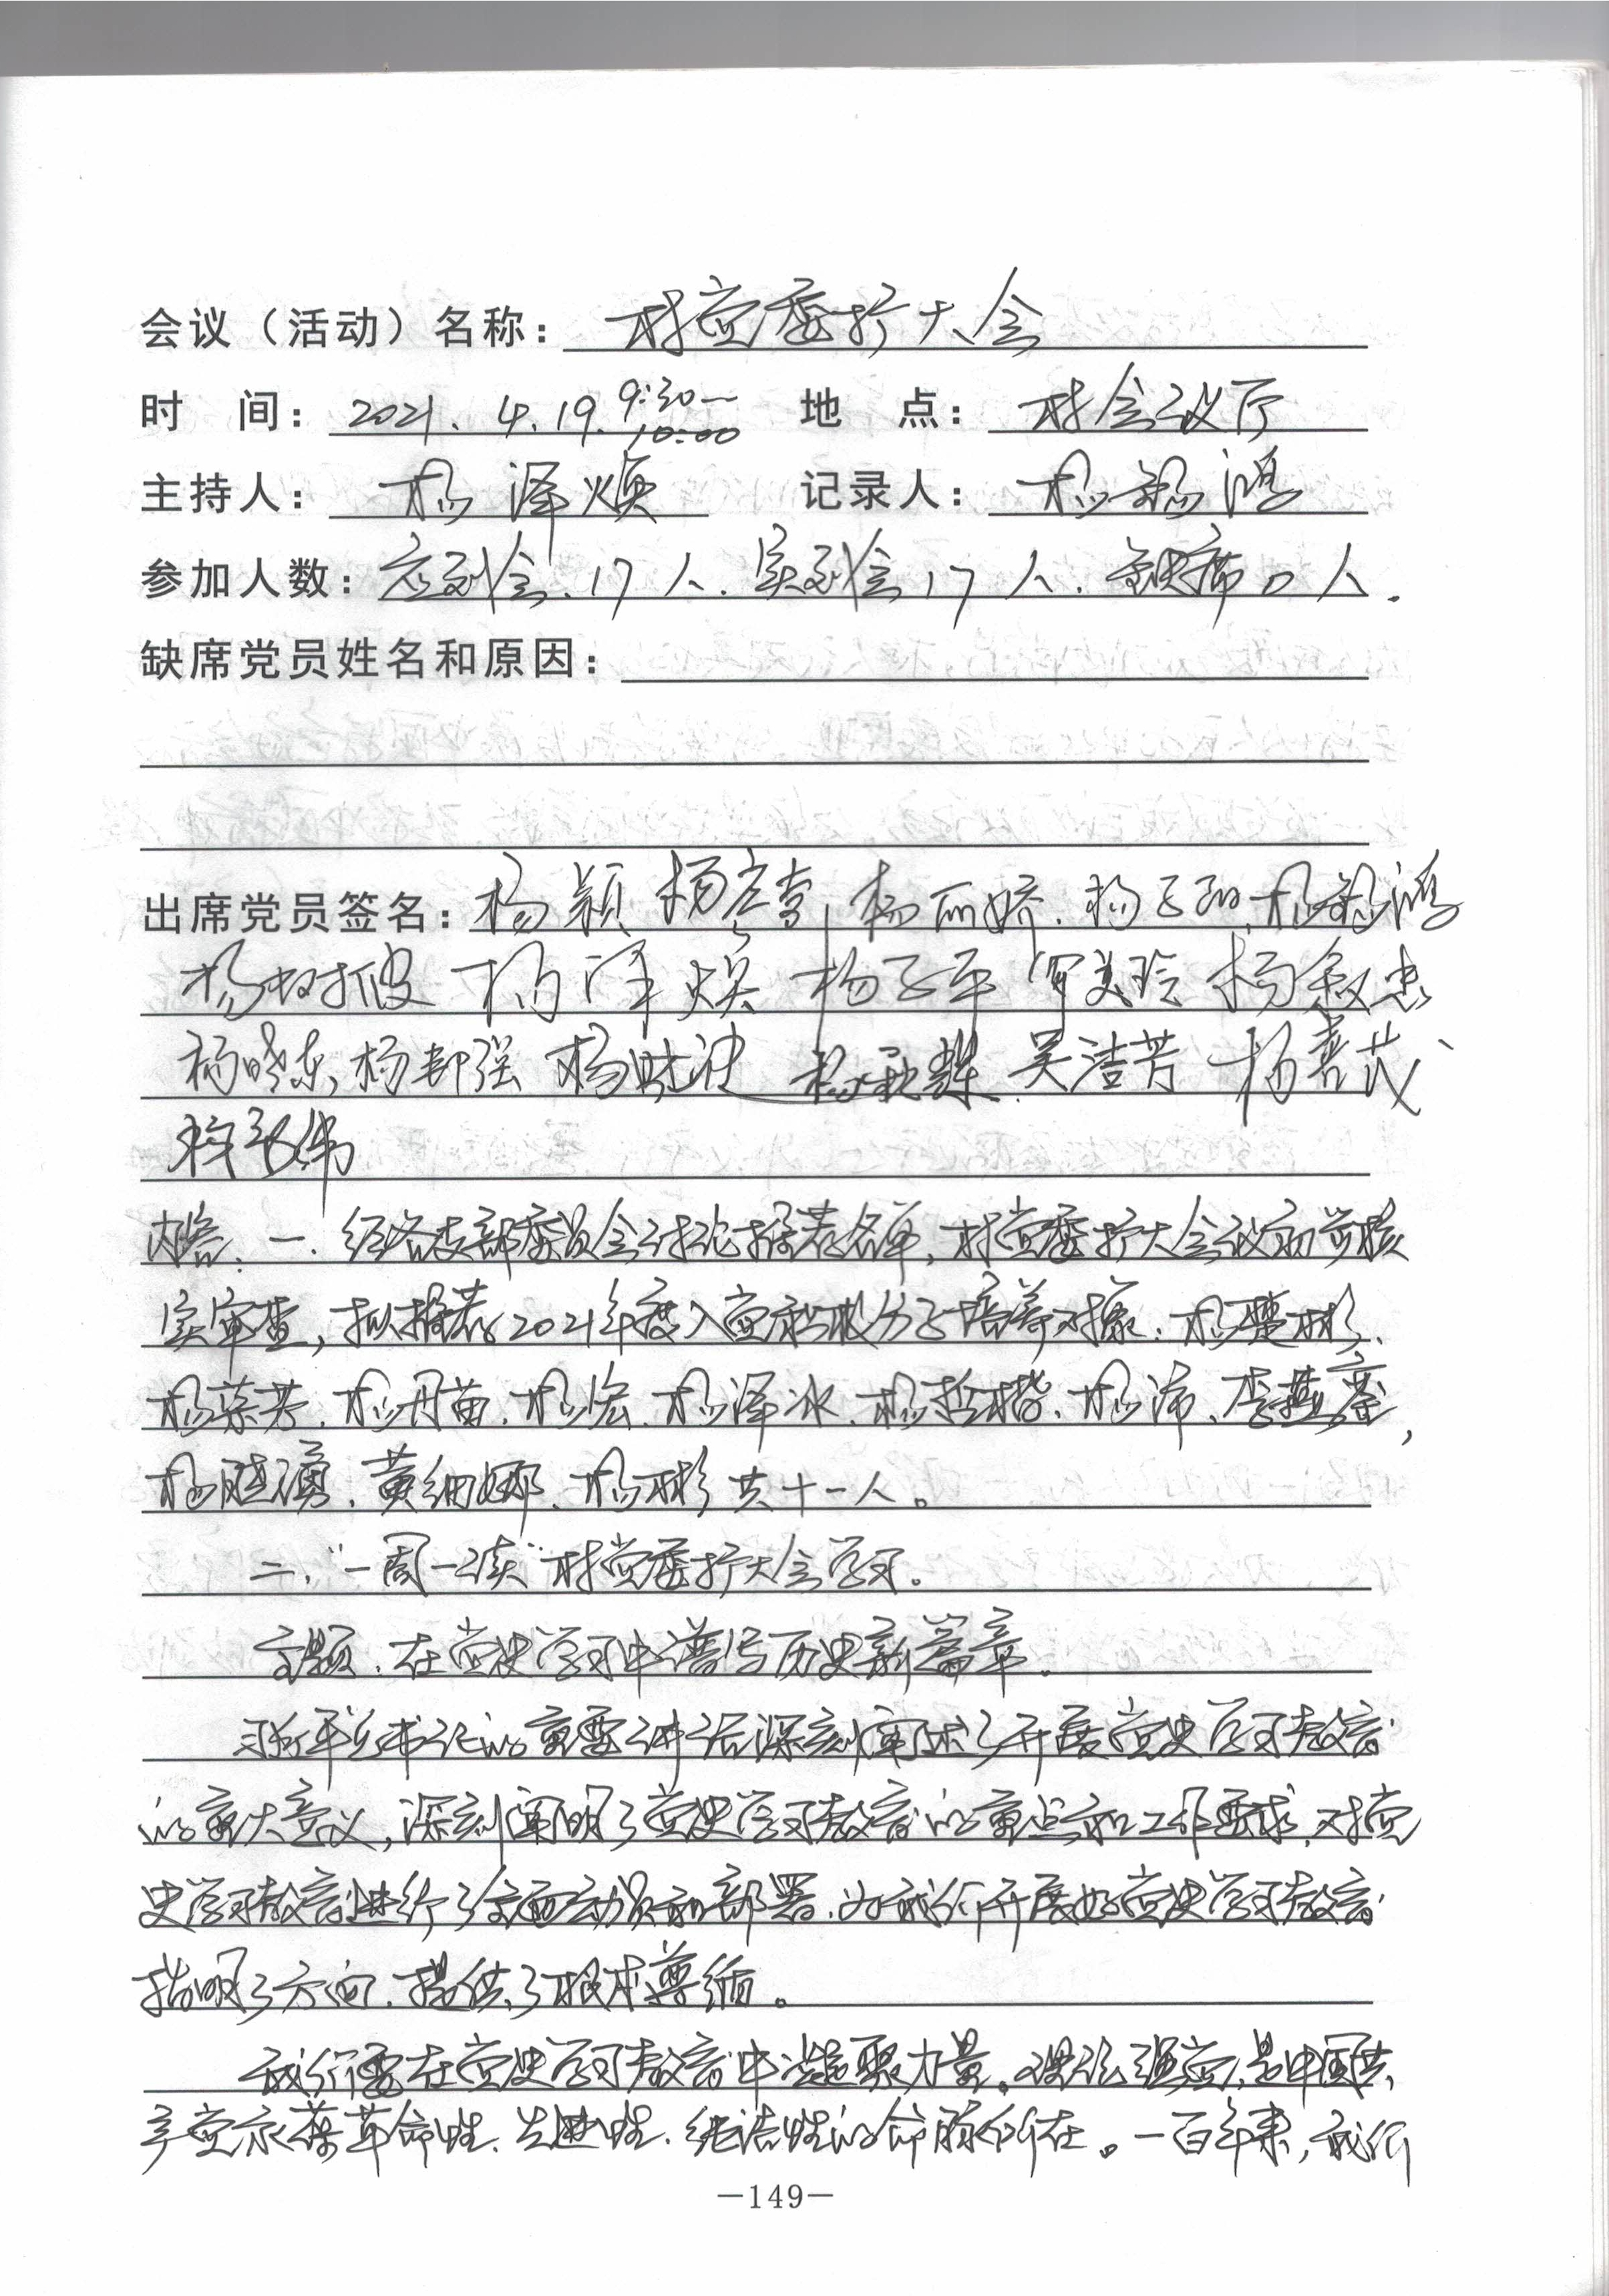 会议（活动）名称：村党委扩大会
时 间：2021.4.19.9:30—10:00 地 点：村会议厅
主持人：杨泽焕 记录人：杨锦鸿
参加人数：应到会.17人.实到会17人.缺席0人.
缺席党员姓名和原因：
出席党员签名：杨颖 杨 杨丽娇.杨子 杨锦鸿
杨树波 杨泽焕 杨子平 罗美玲 杨叙忠
杨晓东,杨 强 杨 杨秋辉.吴洁芳 杨喜茂
内容：一.经各支部委员会讨论推荐名单,村党委扩大会议初学核
实审查,拟推荐2021年度入党积极分子培养对象：杨楚彬.
杨蔡芳.杨丹苗.杨宏.杨泽冰.杨哲楷.杨沛.李燕
杨晓湧.黄细娜.杨彬共十一人。
二.“一周一读”村党委扩大会学习。
主题.在党史学习中谱写历史新篇章.
习近平总书记的重要讲话深刻阐述了开展党史学习教育
的重大意义,深刻阐明了党史学习教育的重点和工作要求.对党
史学习教育进行了全面动员和部署.为我们开展好党史学习教育
指明了方向.提供了根本遵循。
我们要在党史学习教育中凝聚力量。理论强党,是中国共
产党永葆革命性.先进性.纯洁性的命脉所在。一百年来,我们
—149—